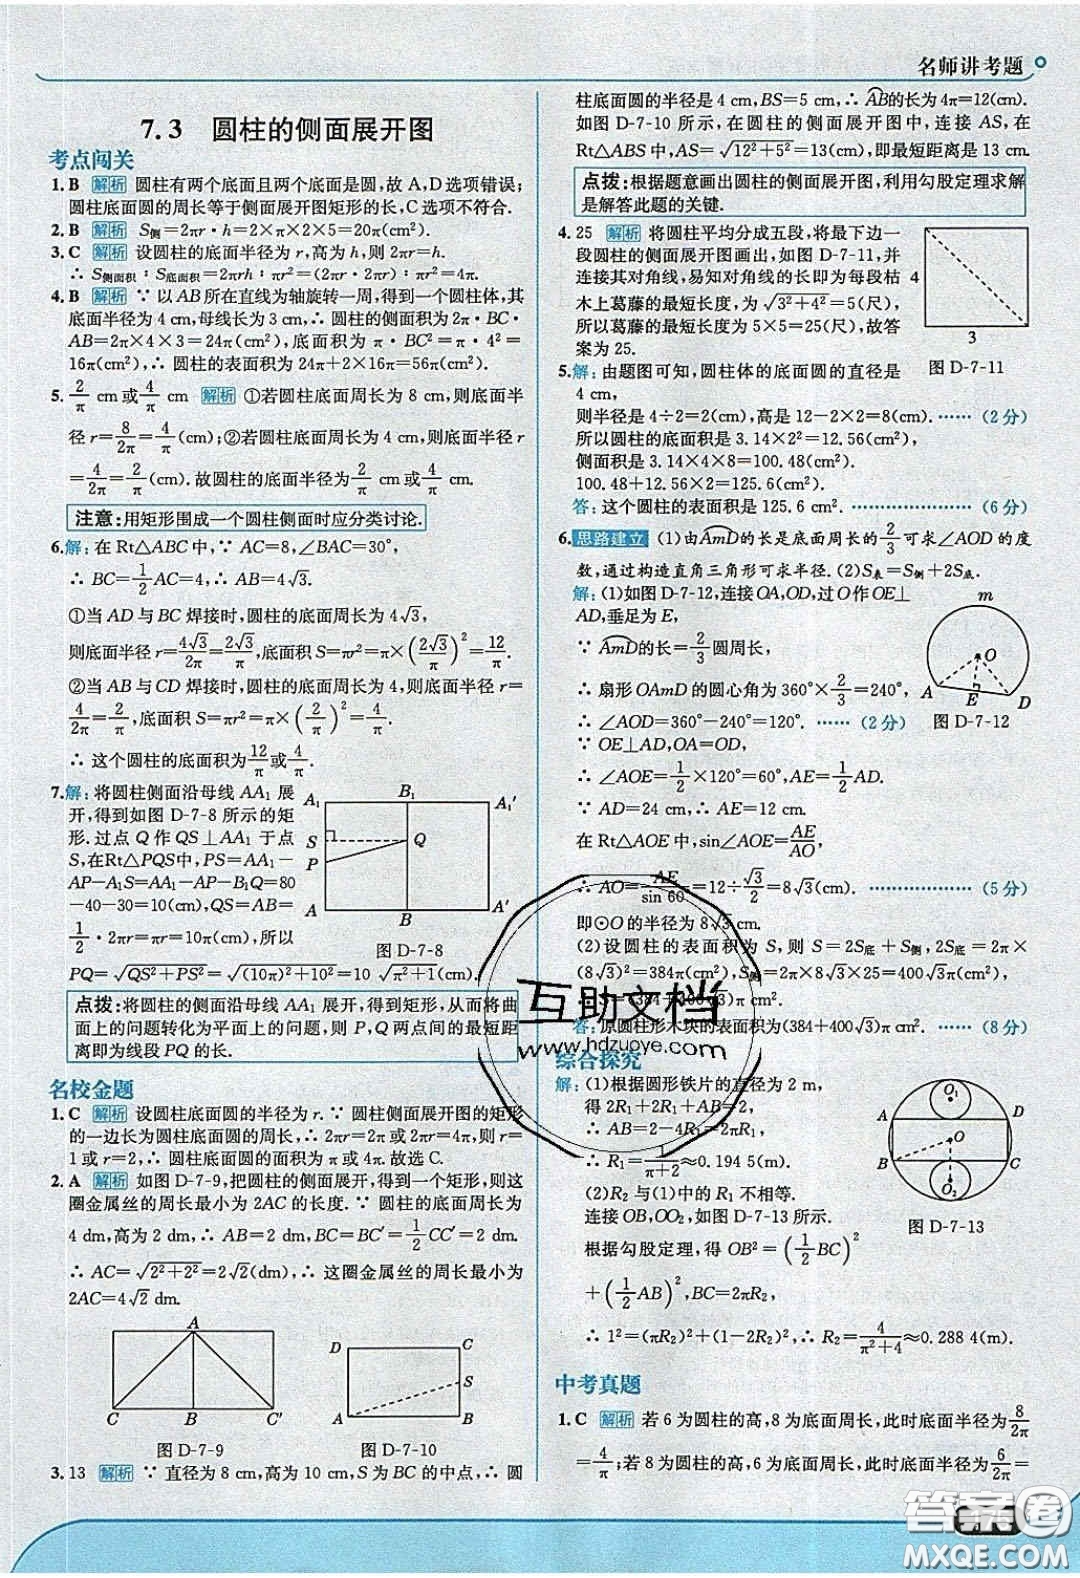 名师讲考题
7.3 圆柱的侧面展开图
考点闯关
1.B 解析 圆柱有两个底面且两个底面是圆,故A,D选项错误;
圆柱底面圆的周长等于侧面展开图矩形的长,C选项不符合.
2.B 解析 S侧=2πr·h=2×π×2×5=20π(cm²).
3.C 解析 设圆柱的底面半径为r,高为h,则2πr=h.
∴ S侧面积∶S底面积=2πrh∶πr²=(2πr·2πr)∶πr²=4π.
4.B 解析 ∵ 以AB所在直线为轴旋转一周,得到一个圆柱体,其
底面半径为4 cm,母线长为3 cm,∴ 圆柱的侧面积为2π·BC·
AB=2π×4×3=24π(cm²),底面积为π·BC²=π·4²=
16π(cm²),∴ 圆柱的表面积为24π+2×16π=56π(cm²).
5. 2/π cm或4/π cm 解析 ①若圆柱底面周长为8 cm,则底面半
径r=8/2π=4/π(cm);②若圆柱底面周长为4 cm,则底面半径r
=4/2π=2/π(cm).故圆柱的底面半径为2/π cm或4/π cm.
注意:用矩形围成一个圆柱侧面时应分类讨论.
6.解:在Rt△ABC中,∵ AC=8,∠BAC=30°,
∴ BC=1/2AC=4,∴ AB=4√3.
①当AD与BC焊接时,圆柱的底面周长为4√3,
则底面半径r=4√3/2π=2√3/π,底面积S=πr²=π×(2√3/π)²=12/π.
②当AB与CD焊接时,圆柱的底面周长为4,则底面半径r=
4/2π=2/π,底面积S=πr²=π×(2/π)²=4/π.
∴ 这个圆柱的底面积为12/π或4/π.
7.解:将圆柱侧面沿母线AA₁展
开,得到如图D-7-8所示的矩
形.过点Q作QS⊥AA₁于点
S,在Rt△PQS中,PS=AA₁-
AP-A₁S=AA₁-AP-B₁Q=80
-40-30=10(cm),QS=AB=
1/2·2πr=πr=10π(cm),所以
PQ=√QS²+PS²=√(10π)²+10²=10√π²+1(cm).
A₁ B₁ A₁′
S Q
P
A B A′
图D-7-8
点拨:将圆柱的侧面沿母线AA₁展开,得到矩形,从而将曲
面上的问题转化为平面上的问题,则P,Q两点间的最短距
离即为线段PQ的长.
名校金题
1.C 解析 设圆柱底面圆的半径为r.∵ 圆柱侧面展开图的矩形
的一边长为圆柱底面圆的周长,∴ 2πr=2π或2πr=4π,则r=
1或r=2,∴ 圆柱底面圆的面积为π或4π.故选C.
2.A 解析 如图D-7-9,把圆柱的侧面展开,得到一个矩形,则这
圈金属丝的周长最小为2AC的长度.∵ 圆柱的底面周长为
4 dm,高为2 dm,∴ AB=2 dm,BC=BC′=1/2CC′=2 dm,
∴ AC=√2²+2²=2√2(dm),∴ 这圈金属丝的周长最小为
2AC=4√2 dm.
A
C B C′
图D-7-9
D C
S
A B
图D-7-10
3.13 解析 ∵ 直径为8 cm,高为10 cm,S为BC的中点,∴ 圆
柱底面圆的半径是4 cm,BS=5 cm,∴ AB的长为4π=12(cm).
如图D-7-10所示,在圆柱的侧面展开图中,连接AS,在
Rt△ABS中,AS=√12²+5²=13(cm),即最短距离是13 cm.
点拨:根据题意画出圆柱的侧面展开图,利用勾股定理求解
是解答此题的关键.
4.25 解析 将圆柱平均分成五段,将最下边一
段圆柱的侧面展开图画出,如图D-7-11,并
连接其对角线,易知对角线的长即为每段枯
木上葛藤的最短长度,为√3²+4²=5(尺),
所以葛藤的最短长度为5×5=25(尺),故答
案为25.
4
3
图D-7-11
5.解:由题图可知,圆柱体的底面圆的直径是
4 cm,
则半径是4÷2=2(cm),高是12-2×2=8(cm).……(2分)
所以圆柱的底面积是3.14×2²=12.56(cm²),
侧面积是3.14×4×8=100.48(cm²).
100.48+12.56×2=125.6(cm²).
答:这个圆柱的表面积是125.6 cm².……………………(6分)
6.思路建立 (1)由AmD的长是底面周长的2/3可求∠AOD的度
数,通过构造直角三角形可求半径.(2)S表=S侧+2S底.
解:(1)如图D-7-12,连接OA,OD,过O作OE⊥
AD,垂足为E,
∵ AmD的长=2/3圆周长,
∴ 扇形OAmD的圆心角为360°×2/3=240°,
∴ ∠AOD=360°-240°=120°.……(2分)
∵ OE⊥AD,OA=OD,
∴ ∠AOE=1/2×120°=60°,AE=1/2AD.
∵ AD=24 cm,∴ AE=12 cm.
在Rt△AOE中,sin∠AOE=AE/AO,
∴ AO=AE/sin 60°=12÷√3/2=8√3(cm).………………(5分)
即⊙O的半径为8√3 cm.
m
O
A E D
图D-7-12
(2)设圆柱的表面积为S,则S=2S底+S侧,2S底=2π×
(8√3)²=384π(cm²),S侧=2π×8√3×25=400√3π(cm²),
∴ S=(384+400√3)π cm².
答:原圆柱形木块的表面积为(384+400√3)π cm².……(8分)
综合探究
解:(1)根据圆形铁片的直径为2 m,
得2R₁+2R₁+AB=2,
∴ AB=2-4R₁=2πR₁,
∴ R₁=1/π+2≈0.194 5(m).
(2)R₂与(1)中的R₁不相等.
连接OB,OO₂,如图D-7-13所示.
根据勾股定理,得OB²=(1/2BC)²
+(1/2AB)²,BC=2πR₂,
∴ 1²=(πR₂)²+(1-2R₂)²,∴ R₂=4/π²+4≈0.288 4(m).
O₁
A D
O
B C
O₂
图D-7-13
中考真题
1.C 解析 若6为圆柱的高,8为底面周长,此时底面半径为8/2π
=4/π;若8为圆柱的高,6为底面周长,此时底面半径为6/2π=
互助文档
www.hdzuoye.com
答案圈
MXQE.COM